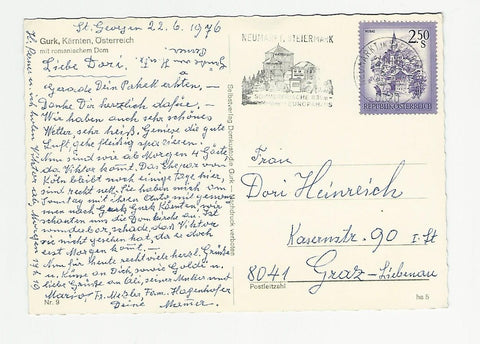 St. Georgen 22.6.1976
Gurk, Kärnten, Österreich
mit romanischem Dom
Liebe Dori,
gerade Dein Paket erhten, –
Danke Dir herzlich dafür, –
Wir haben auch sehr schönes
Wetter sehr heiß. Geniese die gute
Luft, gehe fleißig spazieren.
Nun sind wir ab Morgen 4 Gäste
da Viktor komt. Das Ehepar von
Köln bleibt noch einige Tage hier,
sind recht nett. Sie haben mich am
Sonntag mit ihren Auto mit genom
men nach Gurk Kärnten, wir
schauten uns die Domkirche an. Ist
wunderbar, schade, das Viktor
sie nicht gesehen hat, da er doch
erst Morgen komt, –
Nun für Heute recht viele herzl. Grüße
u. Küsse an Dich, sowie Goldi u.
liebe Grüße an Eri, seine Mutter und
Mario, Fr. Metzler, Fam. Hagenhofer
Deine Mama.
Nr. 9
Selbstverlag Domkustodie Gurk — Nachdruck verboten
NEUMARKT, STEIERMARK
2.50
S
REPUBLIK ÖSTERREICH
Frau
Dori Heinreich
Kasernstr. 90 I. St
8041 Graz-Liebenau
Postleitzahl
hs 5